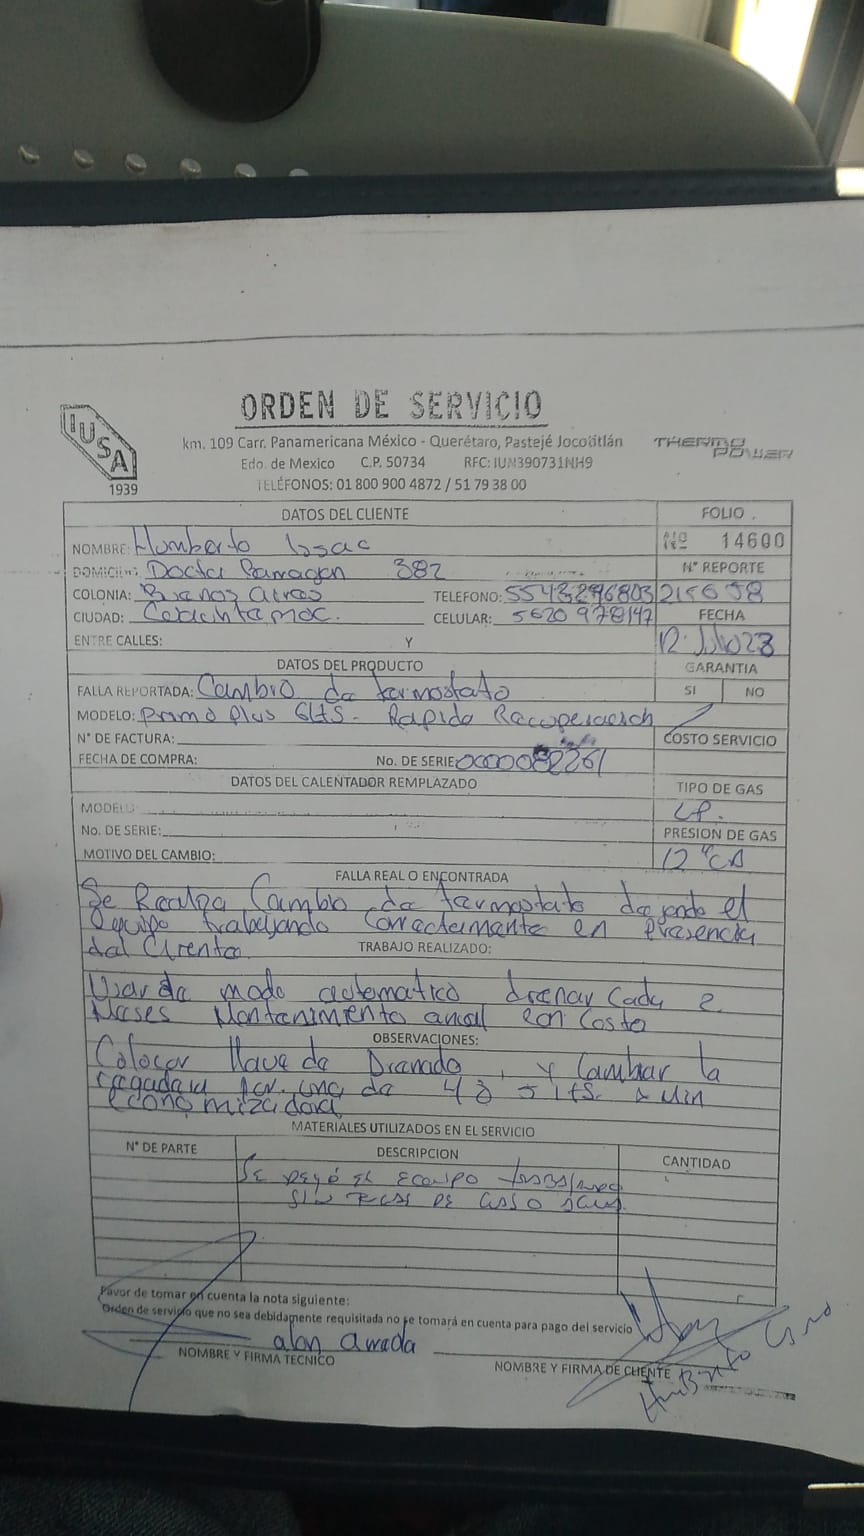 ORDEN DE SERVICIO
IUSA
1939
km. 109 Carr. Panamericana México - Querétaro, Pastejé Jocotitlán
THERMO POWER
Edo. de Mexico C.P. 50734 RFC: IUN390731NH9
TELÉFONOS: 01 800 900 4872 / 51 79 38 00
DATOS DEL CLIENTE FOLIO
NOMBRE: Humberto Issac Nº 14600
DOMICILIO: Doctor Barragan 382 N° REPORTE
COLONIA: Buenos Aires TELEFONO:
CIUDAD: CELULAR: 5620978147 FECHA
ENTRE CALLES: Y 12 Julio 23
DATOS DEL PRODUCTO GARANTIA
FALLA REPORTADA: Cambio de termostato SI NO
MODELO: Primo Plus 6 lts. Rapida Recuperacion
N° DE FACTURA: COSTO SERVICIO
FECHA DE COMPRA: No. DE SERIE:
DATOS DEL CALENTADOR REMPLAZADO TIPO DE GAS
MODELO: LP.
No. DE SERIE: PRESION DE GAS
MOTIVO DEL CAMBIO: 12 "CA
FALLA REAL O ENCONTRADA
Se Realiza Cambio de termostato dejando el
equipo trabajando correctamente en presencia
del Cliente
TRABAJO REALIZADO:
Usar de modo automatico drenar cada 2
Meses Mantenimiento anual con Costo
OBSERVACIONES:
Colocar llave de Drenado, y Cambiar la
regadera por una de 4 a 5 lts. x Min
economizadora
MATERIALES UTILIZADOS EN EL SERVICIO
N° DE PARTE DESCRIPCION CANTIDAD
Se dejó el equipo
SIN FUGAS DE GAS O AGUA
Favor de tomar en cuenta la nota siguiente:
Orden de servicio que no sea debidamente requisitada no se tomará en cuenta para pago del servicio
alan
NOMBRE Y FIRMA TECNICO
NOMBRE Y FIRMA DE CLIENTE
Humberto